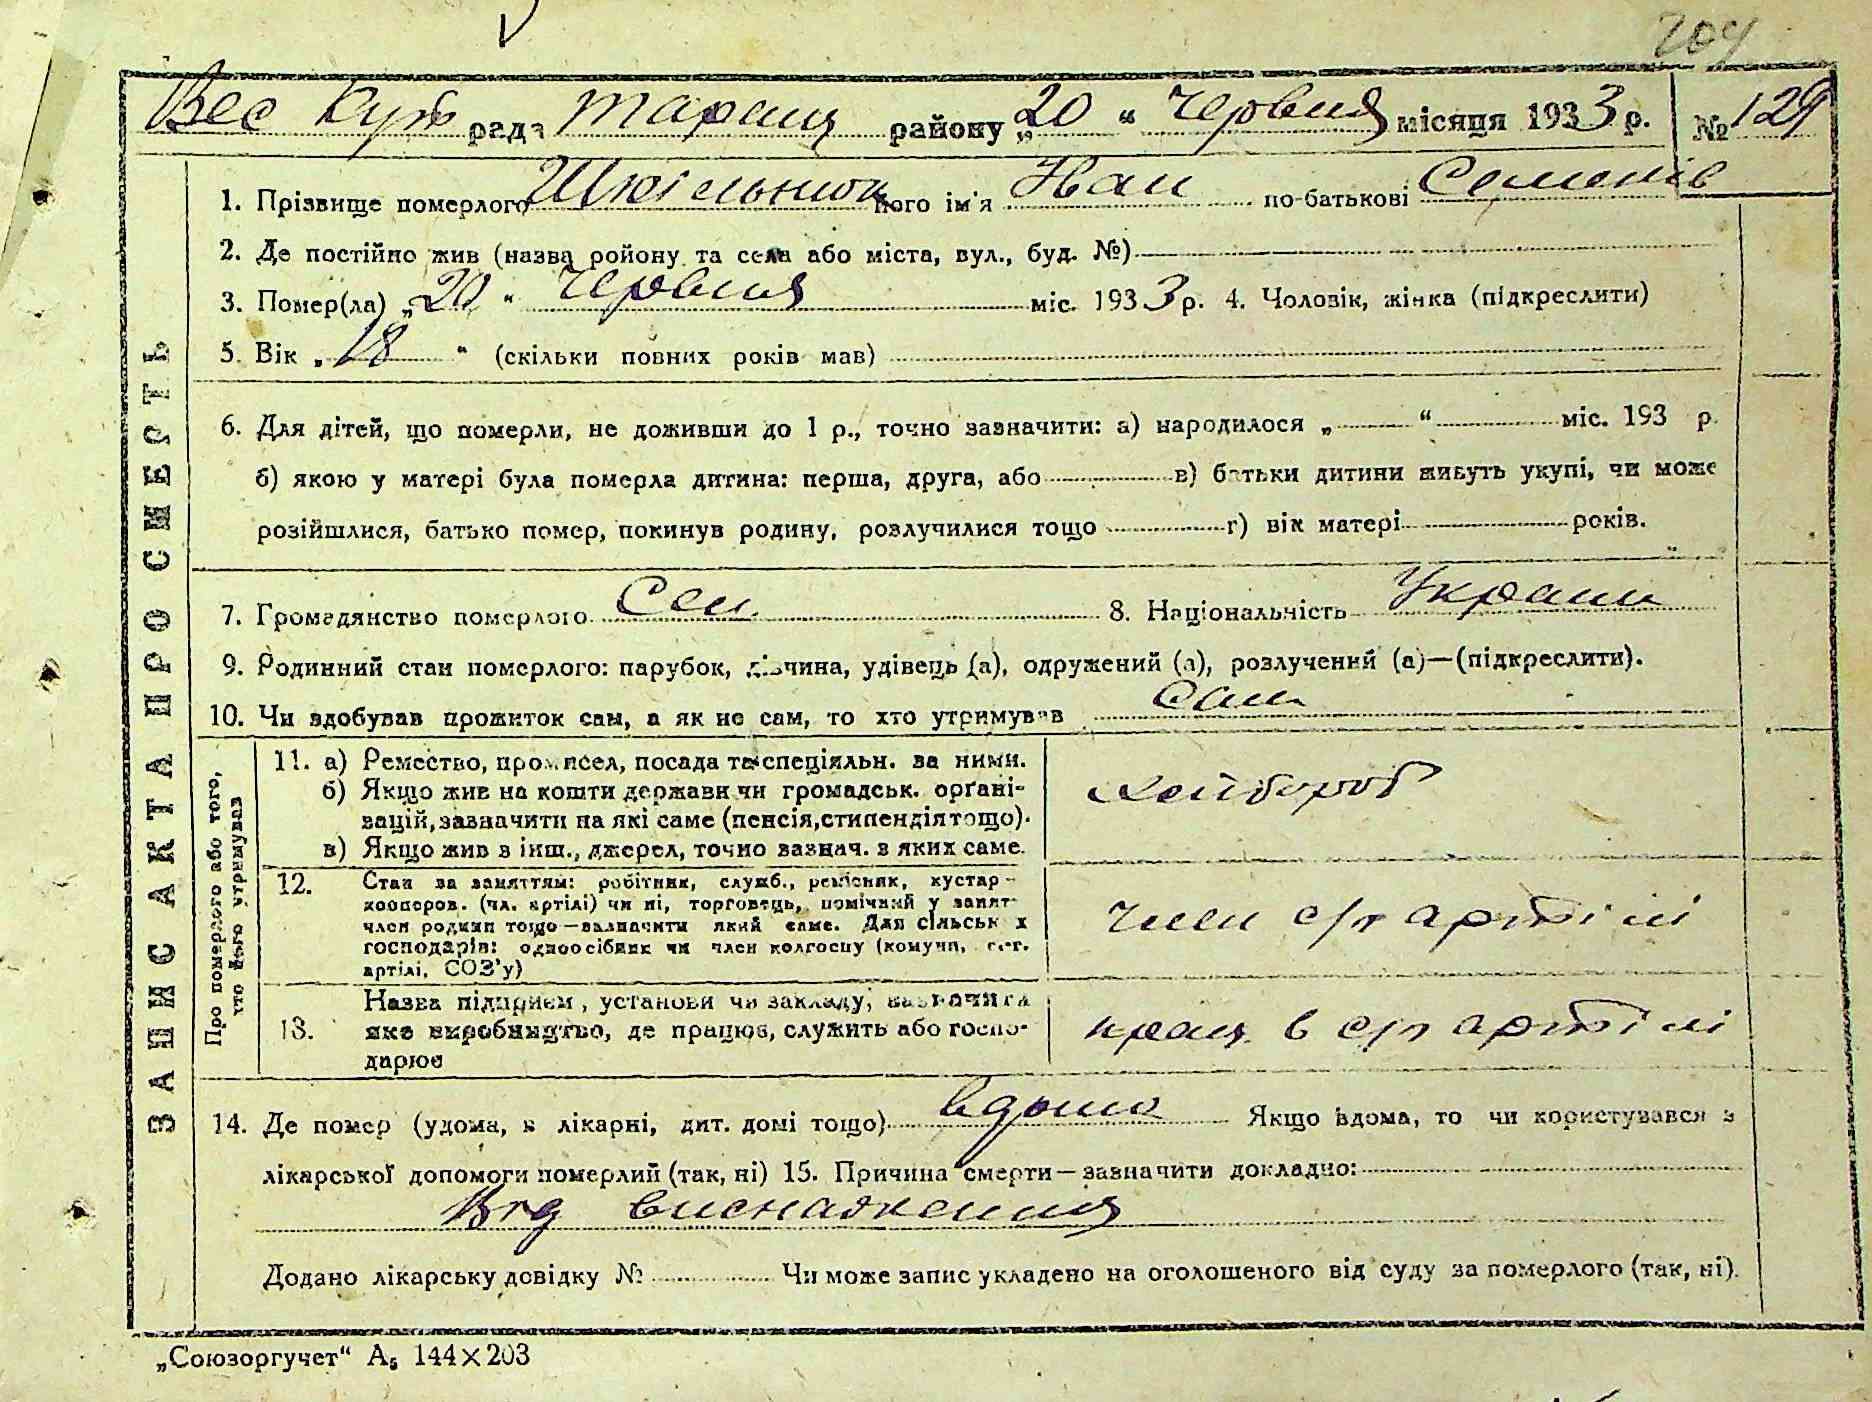 204
Вес Кут рада Таращ району „20“ Червня місяця 1933 р. №129
1. Прізвище померлого Шкільнюк його ім'я Іван по-батькові Семенів
2. Де постійно жив (назва ройону та села або міста, вул., буд. №)
3. Помер(ла) „20“ Червня міс. 1933 р. 4. Чоловік, жінка (підкреслити)
5. Вік „18“ (скільки повних років мав)
6. Для дітей, що померли, не доживши до 1 р., точно зазначити: а) народилося „ “ міс. 193 р.
б) якою у матері була померла дитина: перша, друга, або в) батьки дитини живуть укупі, чи може
розійшлися, батько помер, покинув родину, розлучилися тощо г) вік матері років.
7. Громадянство померлого Сел. 8. Національність Украін
9. Родинний стан померлого: парубок, дівчина, удівець (а), одружений (а), розлучений (а)—(підкреслити).
10. Чи здобував прожиток сам, а як не сам, то хто утримував сам
ЗАПИС АКТА ПРО СМЕРТЬ
Про померлого або того,
хто його утримував
11. а) Ремество, промисел, посада та спеціяльн. за ними.
б) Якщо жив на кошти держави чи громадськ. орґані-
зацій, зазначити на які саме (пенсія, стипендія тощо).
в) Якщо жив з інш., джерел, точно зазнач. з яких саме.
хлібороб
12. Стан за заняттям: робітник, служб., ремісник, кустар-
кооперов. (чл. артілі) чи ні, торговець, помічний у занят.
член родини тощо—зазначити який саме. Для сільськ х
господарів: одноосібник чи член колгоспу (комуни, с.-г.
артілі, СОЗ'у)
член с/г артілі
13. Назва підприєм., установи чи закладу, зазначити
яке виробництво, де працює, служить або госпо-
дарює
прац. в с/г артілі
14. Де помер (удома, в лікарні, дит. домі тощо) вдома Якщо вдома, то чи користувався з
лікарської допомоги померлий (так, ні) 15. Причина смерти—зазначити докладно:
Від виснаження
Додано лікарську довідку № Чи може запис укладено на оголошеного від суду за померлого (так, ні).
„Союзоргучет“ А₅ 144×203